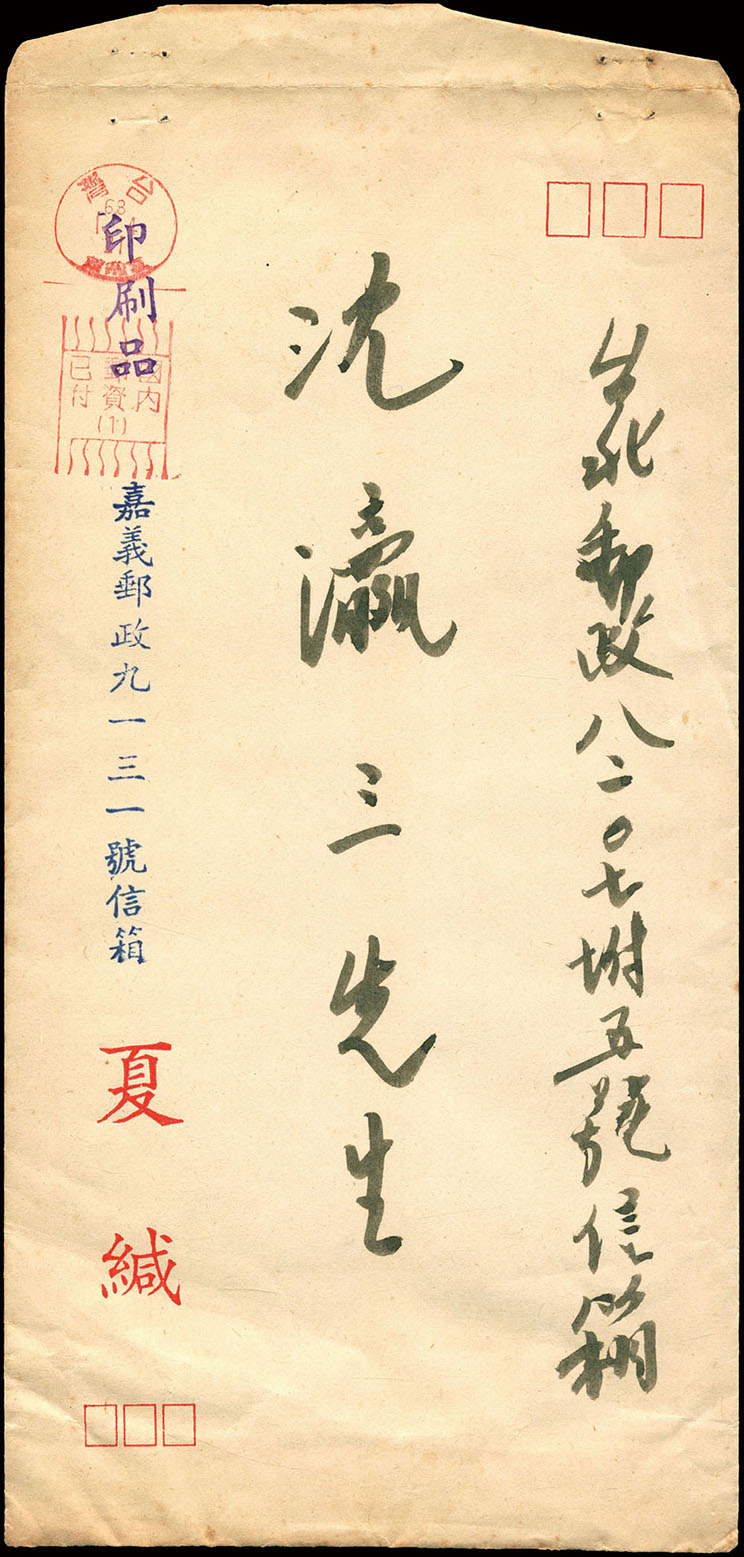 郵政八二〇七坿五號信箱
沈瀛三先生
台灣
63
印刷品
國內
郵資
已付
(1)
嘉義郵政九一三一號信箱
夏緘